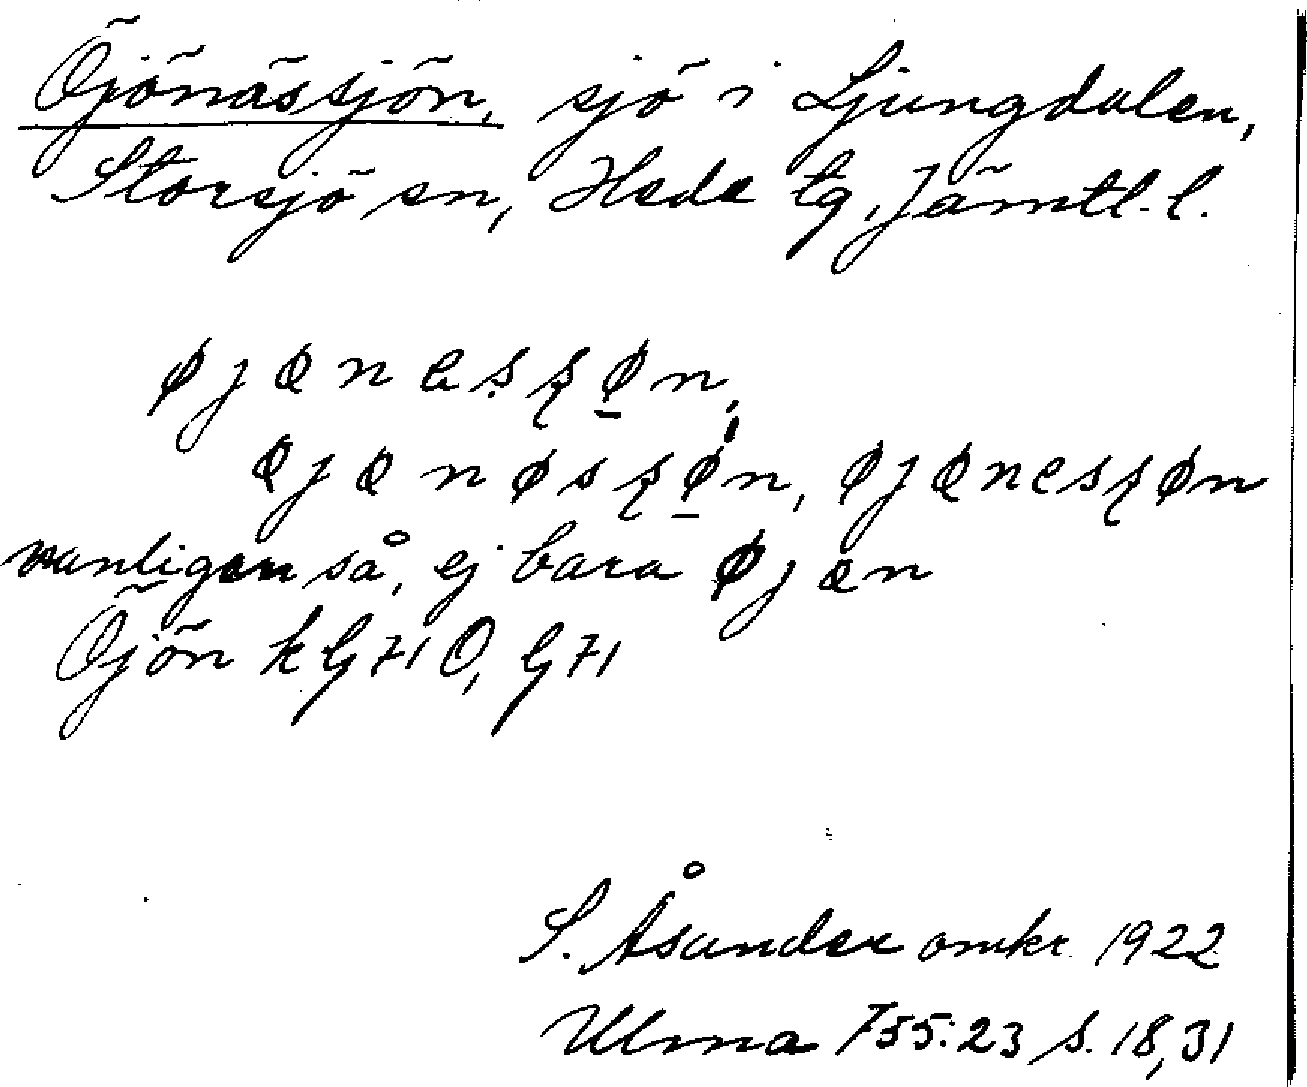 Öjönässjön, sjö i Ljungdalen,
Storsjö sn, Hede tg, Jämtl. l.
øjɵnesʂøn,
ɵjɵnøsʂøn, øjɵnesʂøn
vanligen så, ej bara øjɵn
Öjön k G71 Ö, G71
S. Åsander omkr. 1922
Ulma 755:23 s. 18, 31